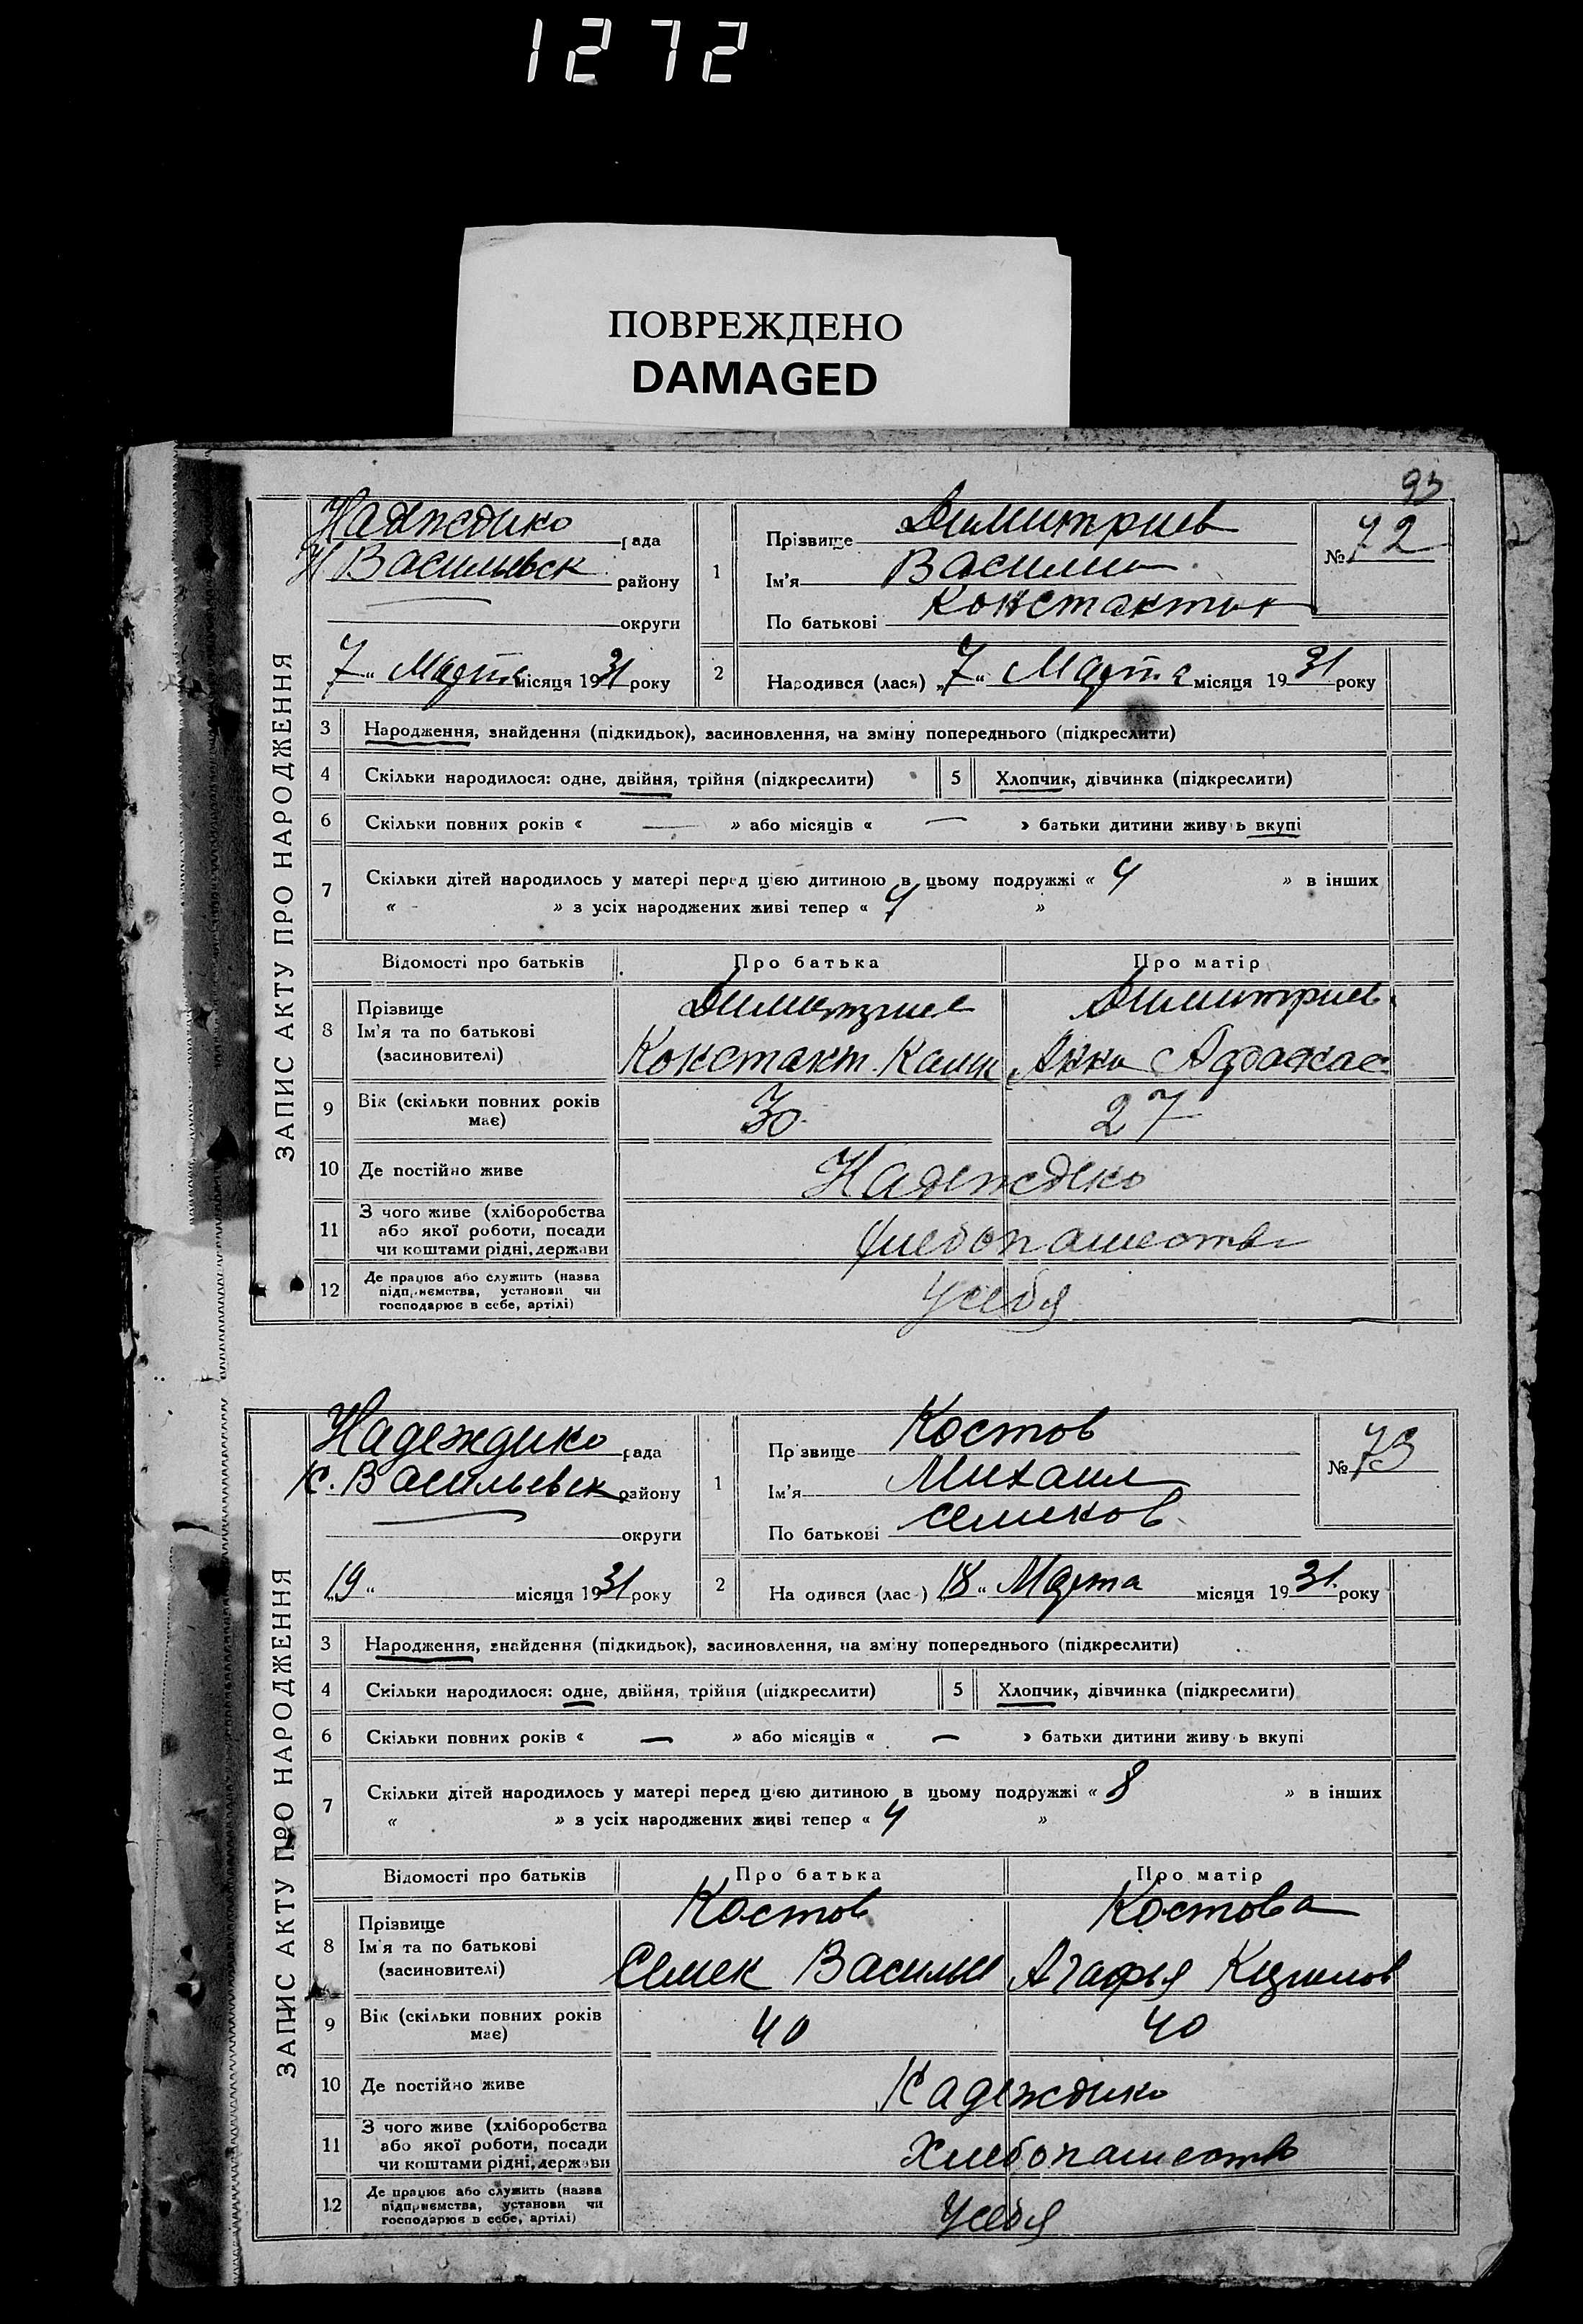 1272
ПОВРЕЖДЕНО
DAMAGED
93
ЗАПИС АКТУ ПРО НАРОДЖЕННЯ
Надеждино рада
Н Васильевск району
округи
"7" Марта місяця 1931 року
1 Прізвище Димитриев
Ім'я Василий
По батькові Константин
№ 72
2 Народився (лася) "7" Марта місяця 1931 року
3 Народження, знайдення (підкидьок), засиновлення, на зміну попереднього (підкреслити)
4 Скільки народилося: одне, двійня, трійня (підкреслити)
5 Хлопчик, дівчинка (підкреслити)
6 Скільки повних років « — » або місяців « — » батьки дитини живуть вкупі
7 Скільки дітей народилось у матері перед цією дитиною в цьому подружжі « 4 » в інших
« - » з усіх народжених живі тепер « 4 »
Відомості про батьків Про батька Про матір
8 Прізвище
Ім'я та по батькові
(засиновителі)
Димитрие Димитриев
Константин Анна
9 Вік (скільки повних років
має)
30 27
10 Де постійно живе Надеждино
11 З чого живе (хліборобства
або якої роботи, посади
чи коштами рідні, держави
Хлебопашество
12 Де працює або служить (назва
підприємства, установи чи
господарює в себе, артілі)
Усебя
ЗАПИС АКТУ ПРО НАРОДЖЕННЯ
Надеждино рада
Н. Васильевск району
округи
"19" місяця 1931 року
1 Прізвище Костов
Ім'я Михаил
По батькові Семенов
№ 73
2 Народився (лась) "18" Марта місяця 1931. року
3 Народження, знайдення (підкидьок), засиновлення, на зміну попереднього (підкреслити)
4 Скільки народилося: одне, двійня, трійня (підкреслити)
5 Хлопчик, дівчинка (підкреслити)
6 Скільки повних років « — » або місяців « — » батьки дитини живуть вкупі
7 Скільки дітей народилось у матері перед цією дитиною в цьому подружжі « 8 » в інших
« » з усіх народжених живі тепер « 4 »
Відомості про батьків Про батька Про матір
8 Прізвище
Ім'я та по батькові
(засиновителі)
Костов Костова
Семен Василие Агафья Кирилов
9 Вік (скільки повних років
має)
40 40
10 Де постійно живе Надеждино
11 З чого живе (хліборобства
або якої роботи, посади
чи коштами рідні, держави
Хлебопашество
12 Де працює або служить (назва
підприємства, установи чи
господарює в себе, артілі)
Усебя